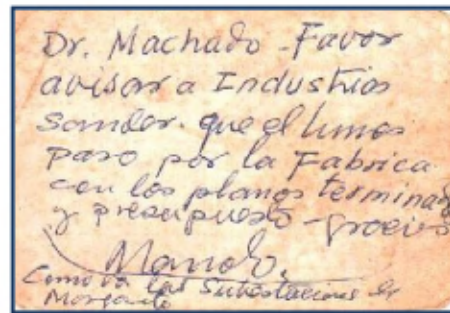 Dr. Machado - Favor
avisar a Industrias
Sander. que el lunes
paso por la Fabrica
con los planos terminados
y presupuesto - gracias
Manolo.
Como va las Subestaciones de
Morganite